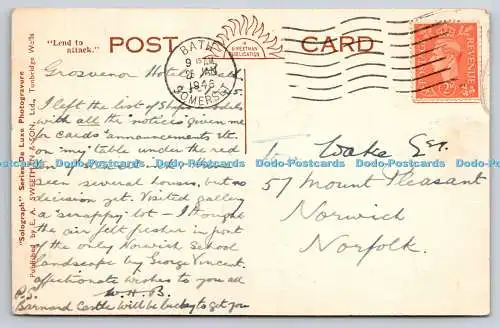 "Lend to
attack."
POST
A
SWEETMAN
PUBLICATION
CARD
BATH
9
25 JAN
1946
SOMERSET
REVENUE
"Solograph" Series De Luxe Photogravure
Published by E. A. SWEETMAN & SON, Ltd., Tunbridge Wells
Grosvenor Hotel
I left the list of Ships models
with all the 'notices' given me
for cards announcements etc.
on 'my' table under the red
seen several houses, but no
decision yet. Visited gallery
a 'scrappy' lot – I thought
the air felt fresher in front
of the only Norwich School
landscape by George Vincent.
affectionate wishes to you all
W.H.B.
P.S.
Barnard Castle will be lucky to get you
Wake Esq.
57 Mount Pleasant
Norwich
Norfolk.
Dodo-Postcards Dodo-Postcards Dodo-Postcards Dodo-Postcards Dodo-Postcards